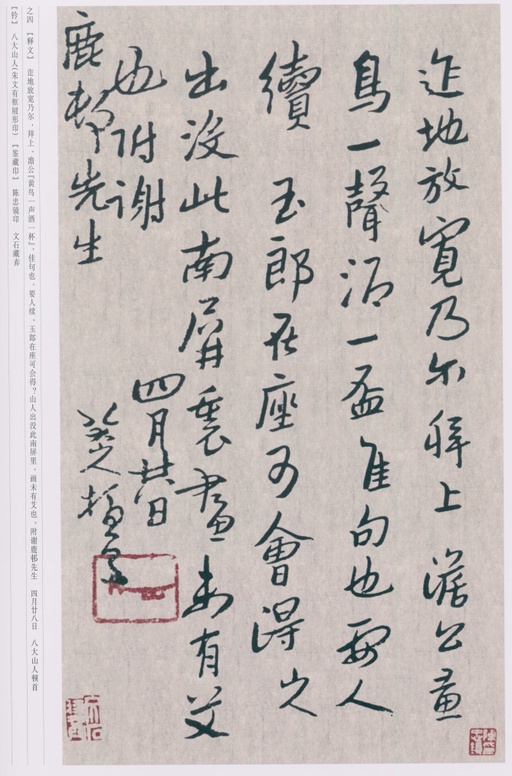 迮地放寬乃尔拜上澹公黄
鳥一聲酒一盃佳句也要人
續玉郎在座可會得山人
出没此南屏裏畫未有艾
也附谢
鹿邨先生
四月廿八日
八大山人頓首
之四 【释文】 迮地放宽乃尔，拜上，澹公『黄鸟一声酒一杯』，佳句也，要人续，玉郎在座可会得？山人出没此南屏里，画未有艾也，附谢鹿邨先生 四月廿八日 八大山人顿首
【钤】 八大山人（朱文有框屐形印） 【鉴藏印】 陈忠镜印 文石藏弆